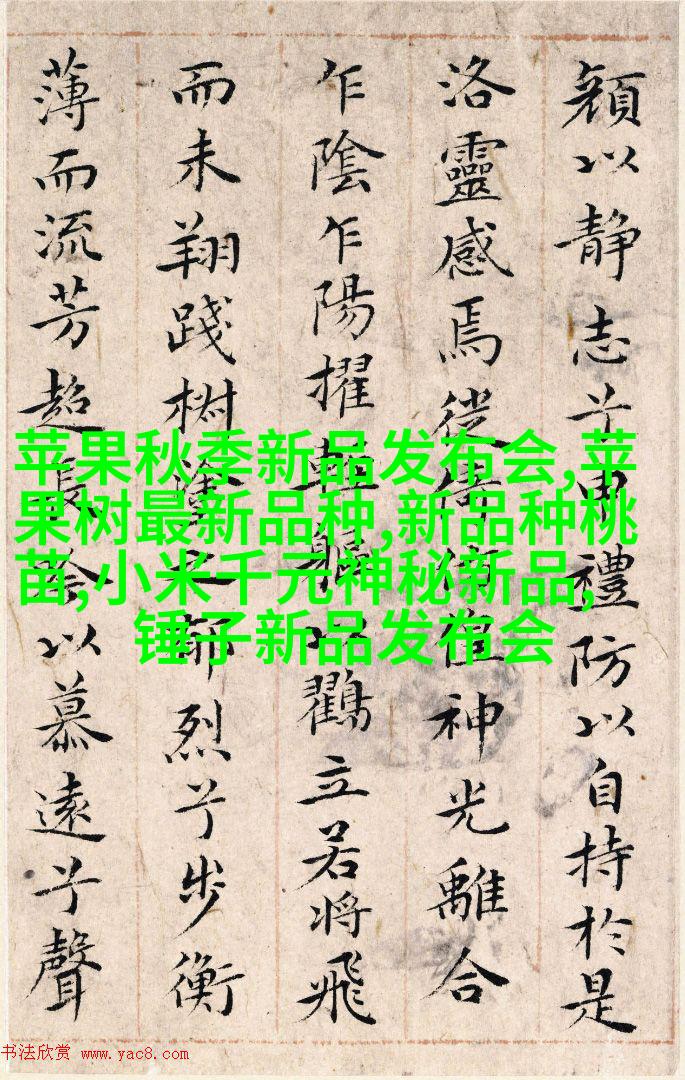 顏以静志兮申禮防以自持於是
洛靈感焉徙倚傍徨神光離合
乍陰乍陽擢輕軀以鸛立若將飛
而未翔踐椒塗之郁烈兮步衡
薄而流芳超長吟以慕遠兮聲
苹果秋季新品发布会,苹
果树最新品种,新品种桃
苗,小米千元神秘新品,
锤子新品发布会
书法欣赏 www.yac8.com